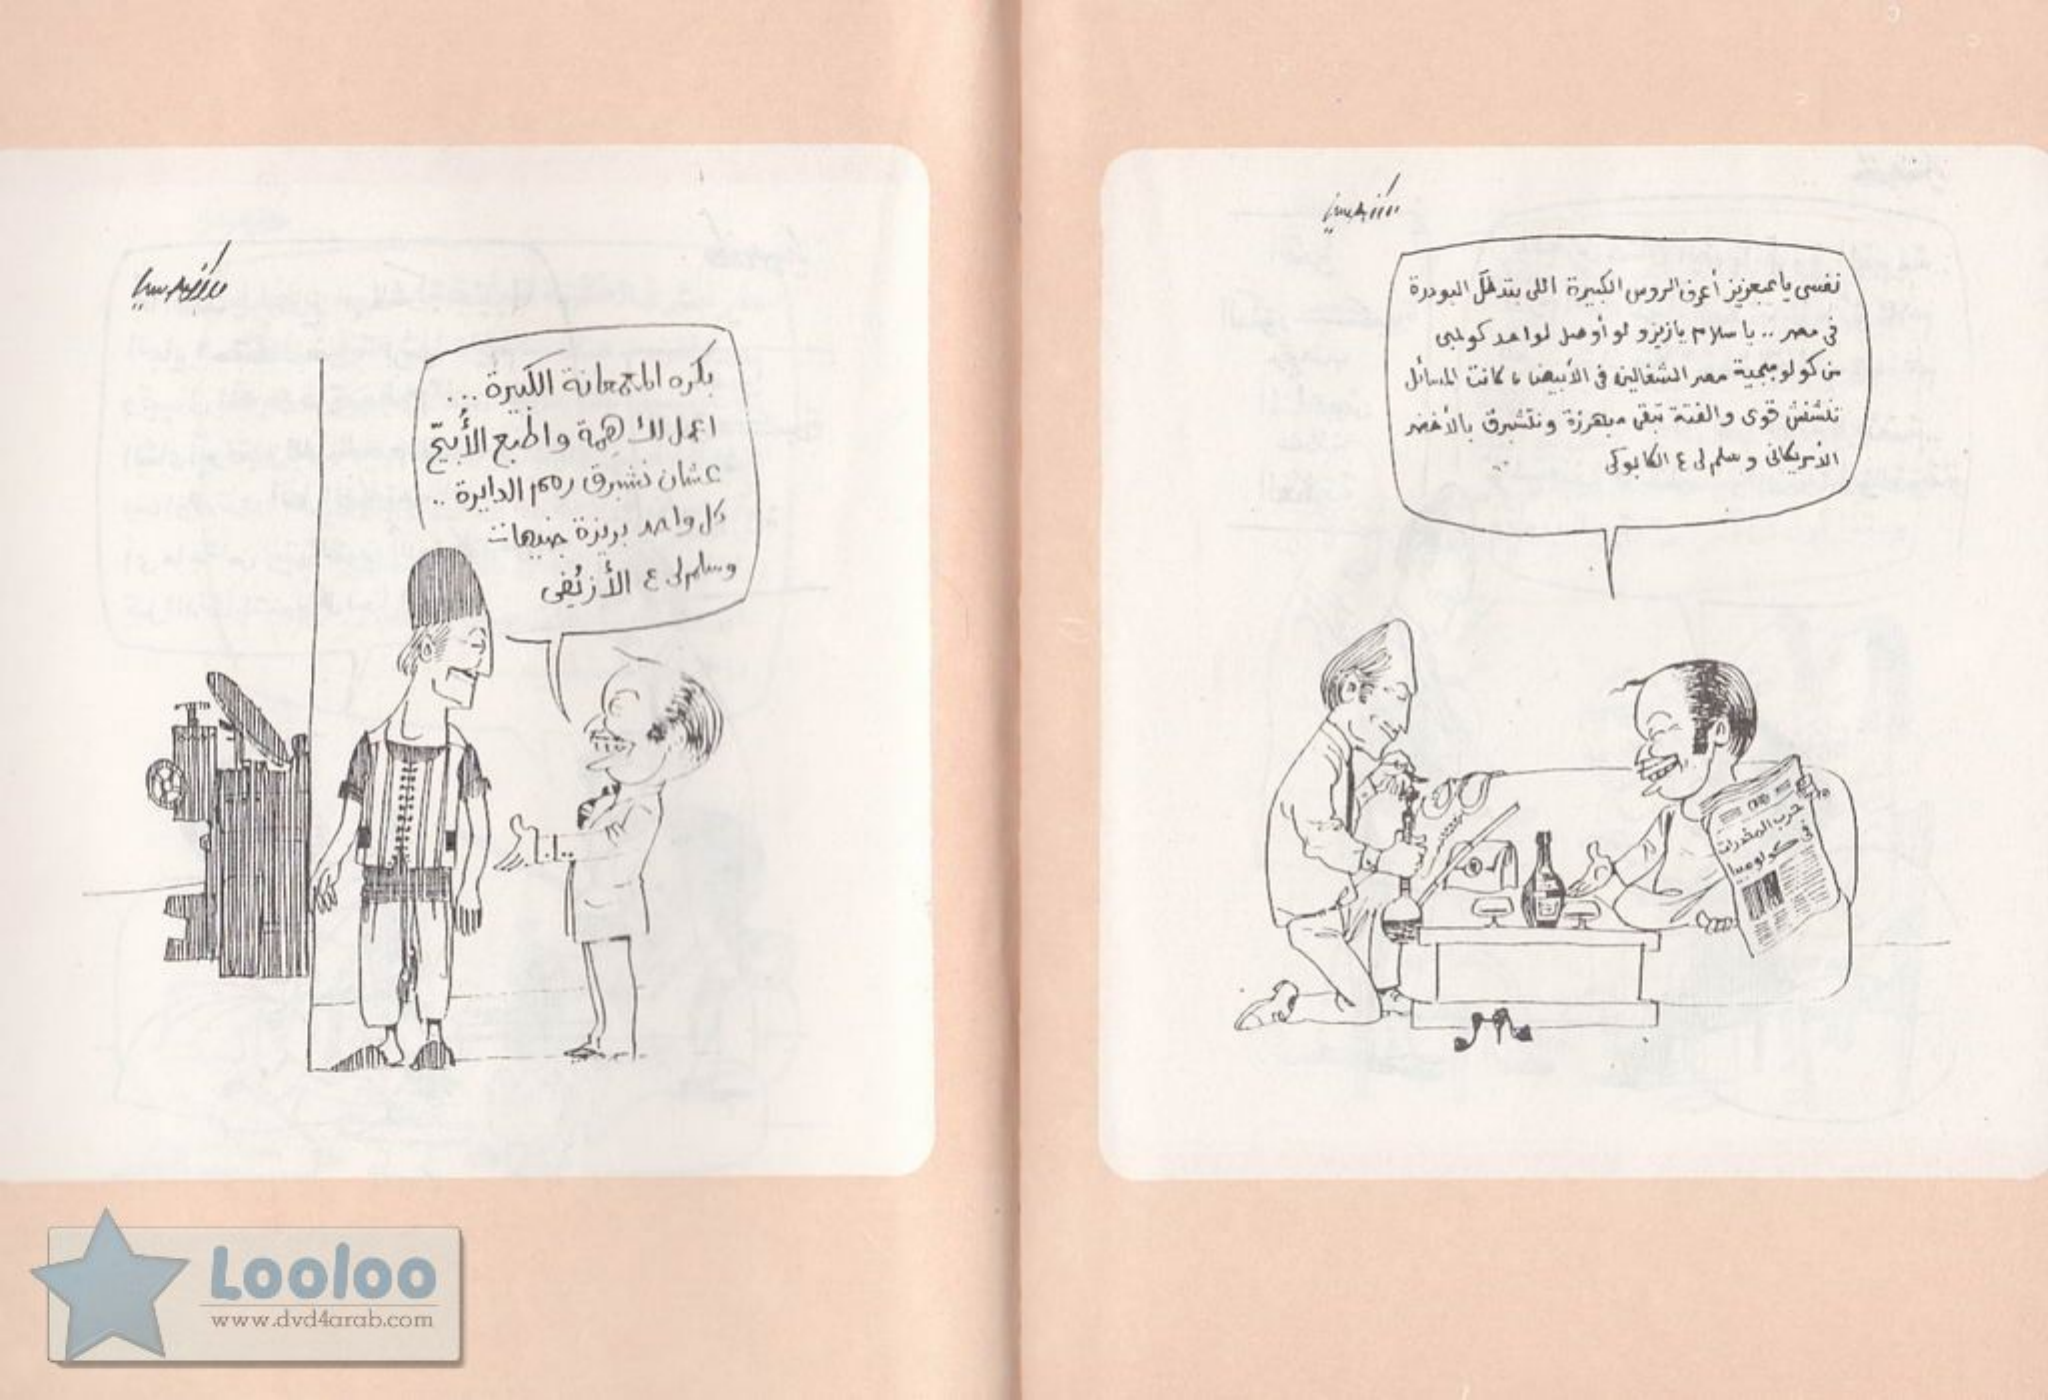 نفسى يا عمبعزيز أعرف الروس الكبيرة اللى بتدخل البودرة
فى مصر .. يا سلام يا زيزو لو أوصل لواحد كولمبى
من كولومبجية مصر الشغالين فى الأبيض، كانت المسائل
تنشنش قوى والفتة تبقى مبهرزة ونتشبرق بالأخضر
الأمريكانى وسلم لى ع الكابوكى
حرب المخدرات
فى كولومبيا
بكره الجمعانة الكبيرة ...
اعمل لك همة واطبع الأبيّح
عشان نشبرق رمم الدايرة ..
كل واحد بريزة جنيهات
وسلم لى ع الأزئفى
Looloo
www.dvd4arab.com